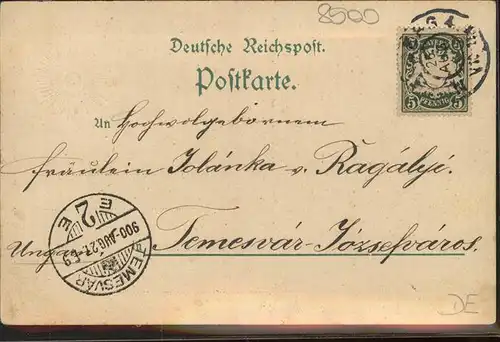 8500
Deutsche Reichspost.
Postkarte.
5 PFENNIG 5
An Hochwolgebornem
fräulein Jolánka v. Ragályi.
Temesvár-Józsefváros.
TEMESVÁR
900-AUG.27
2
E E
DE